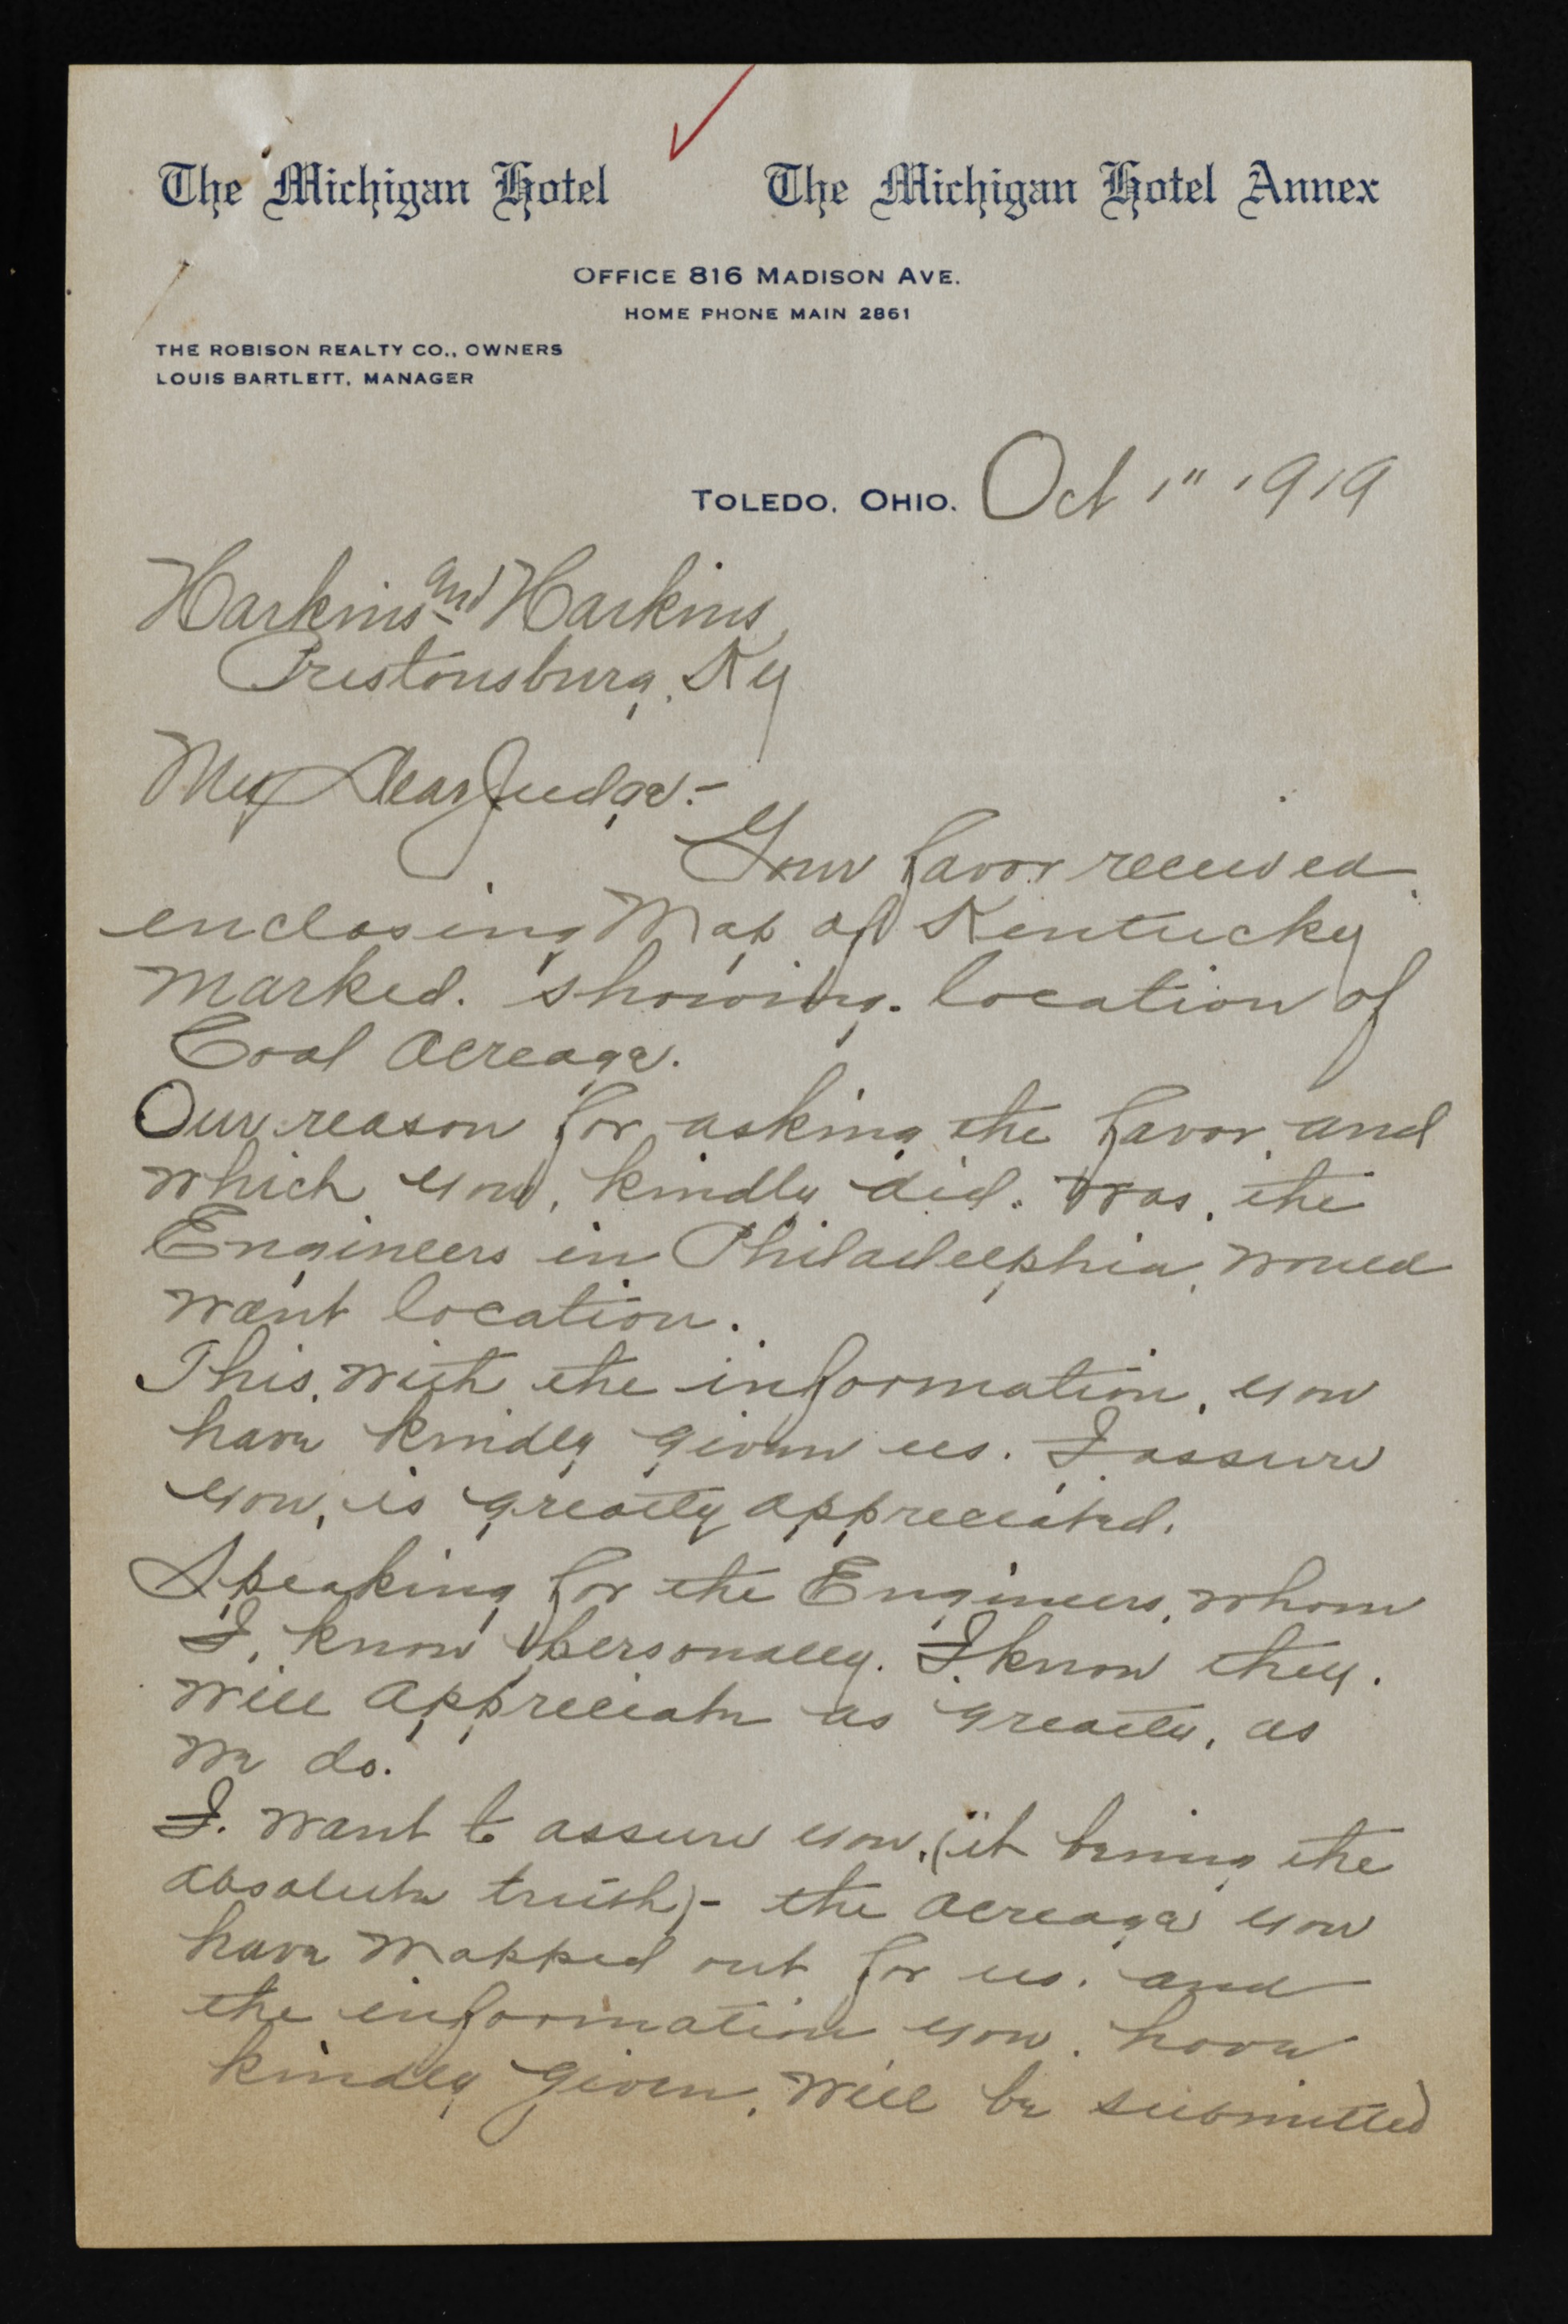 The Michigan Hotel The Michigan Hotel Annex
OFFICE 816 MADISON AVE.
HOME PHONE MAIN 2861
THE ROBISON REALTY CO., OWNERS
LOUIS BARTLETT, MANAGER
TOLEDO, OHIO. Oct 1" 1919
Harkins and Harkins,
Prestonsburg, Ky
My Dear Judge:-
Your favor received
enclosing Map of Kentucky
marked. showing. location of
Coal Acreage.
Our reason for asking the favor, and
which you, kindly did. was, the
Engineers in Philadelphia, would
want location.
This, with the information, you
have kindly given us. I assure
you, is greatly appreciated.
Speaking for the Engineers, whom
I, know personally. I know they.
will appreciate as greatly, as
we do.
I. want to assure you, (it being the
absolute truth)- the acreage you
have mapped out for us. and
the information you. have
kindly given, will be submitted